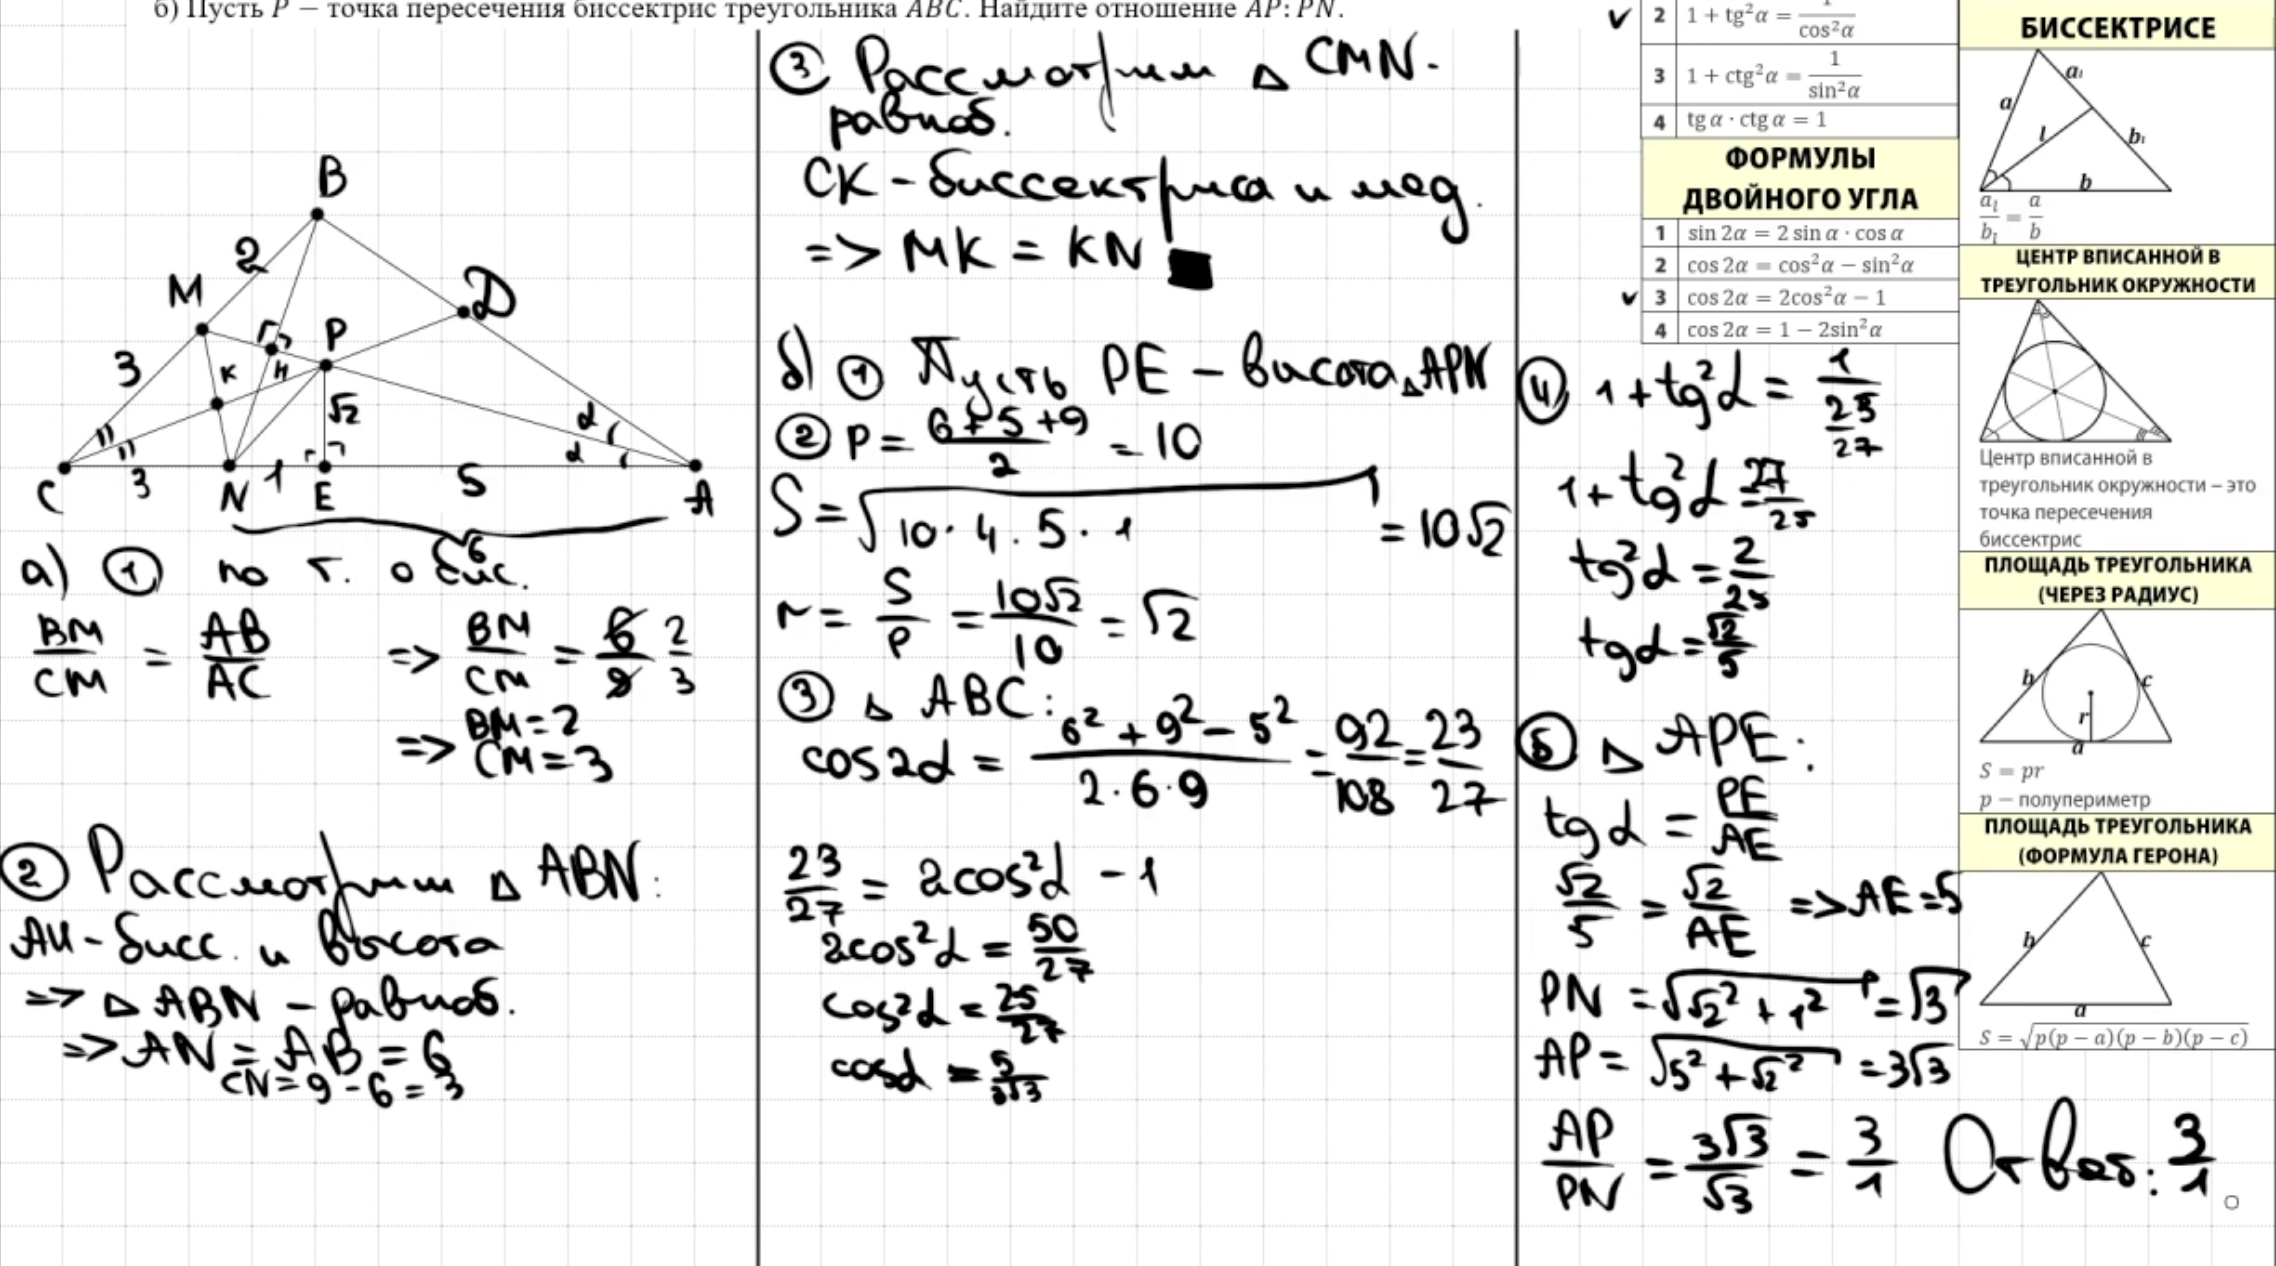 б) Пусть P − точка пересечения биссектрис треугольника ABC. Найдите отношение AP:PN.
B
2
M
D
P
3
K
H
√2
α
α
C
3
N
1
E
5
A
6
а) ① по т. о бис.
BM/CM = AB/AC => BM/CM = 6/9 2/3
=> BM=2
CM=3
② Рассмотрим △ ABN:
AH - бисс. и высота
=> △ ABN - равноб.
=> AN = AB = 6
CN = 9 - 6 = 3
③ Рассмотрим △ CMN.
равноб.
CK - биссектриса и мед.
=> MK = KN
б) ① Пусть PE - высота △APN
② P = (6+5+9)/2 = 10
S = √(10·4·5·1) = 10√2
r = S/P = 10√2/10 = √2
③ △ ABC:
cos2α = (6² + 9² - 5²)/(2·6·9) = 92/108 = 23/27
23/27 = 2cos²α - 1
2cos²α = 50/27
cos²α = 25/27
cosα = 5/(3√3)
④ 1 + tg²α = 1/(25/27)
1 + tg²α = 27/25
tg²α = 2/25
tgα = √2/5
⑤ △ APE:
tgα = PE/AE
√2/5 = √2/AE => AE = 5
PN = √(√2² + 1²) = √3
AP = √(5² + √2²) = 3√3
AP/PN = 3√3/√3 = 3/1 Ответ: 3/1
✓ 2 1 + tg²α = 1/cos²α
3 1 + ctg²α = 1/sin²α
4 tg α · ctg α = 1
ФОРМУЛЫ
ДВОЙНОГО УГЛА
1 sin 2α = 2 sin α · cos α
2 cos 2α = cos²α − sin²α
✓ 3 cos 2α = 2cos²α − 1
4 cos 2α = 1 − 2sin²α
БИССЕКТРИСЕ
a₁
a
l
b₁
b
a₁/b₁ = a/b
ЦЕНТР ВПИСАННОЙ В
ТРЕУГОЛЬНИК ОКРУЖНОСТИ
Центр вписанной в
треугольник окружности – это
точка пересечения
биссектрис
ПЛОЩАДЬ ТРЕУГОЛЬНИКА
(ЧЕРЕЗ РАДИУС)
b
c
r
a
S = pr
p − полупериметр
ПЛОЩАДЬ ТРЕУГОЛЬНИКА
(ФОРМУЛА ГЕРОНА)
b
c
a
S = √(p(p − a)(p − b)(p − c))